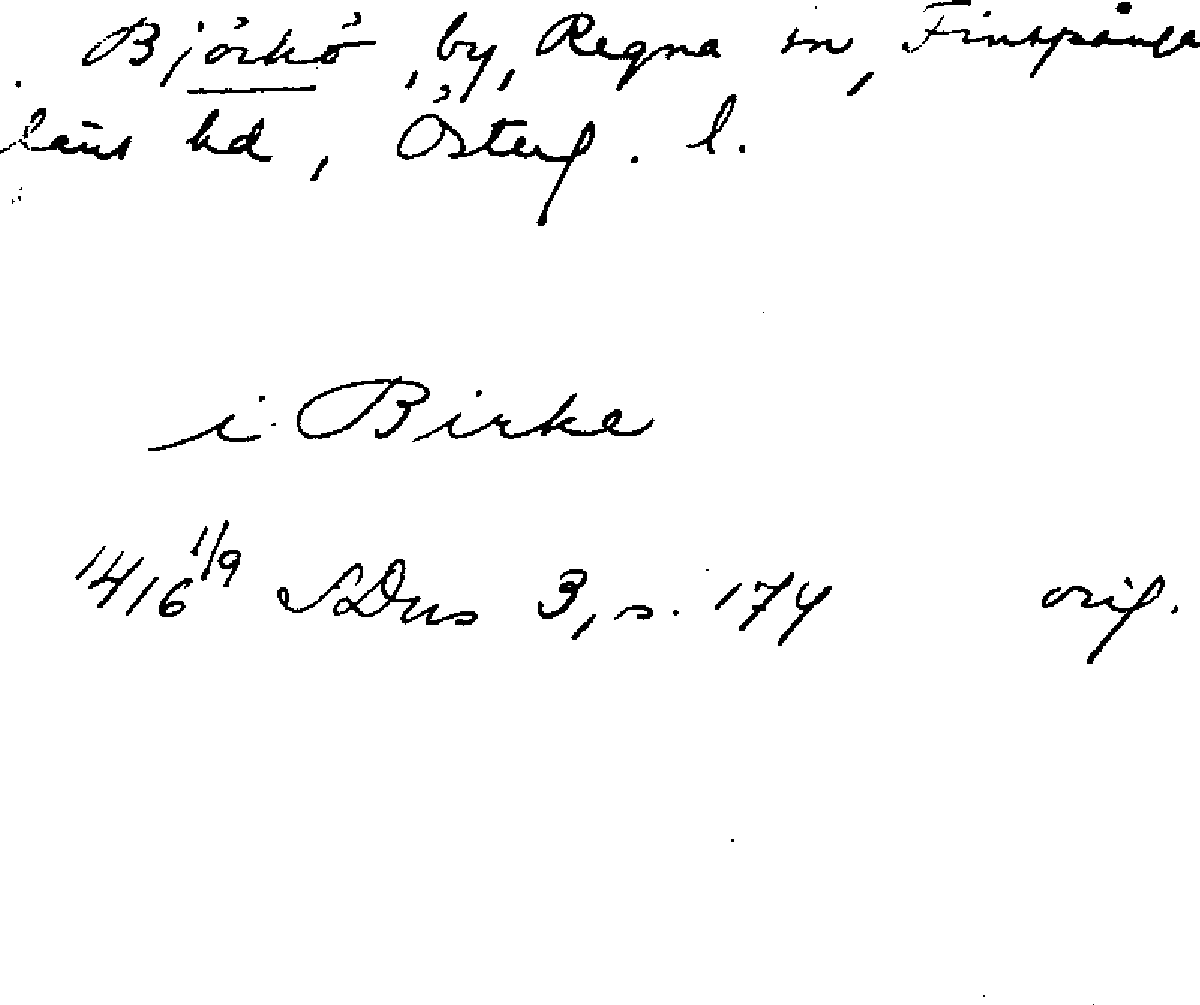 Björkö, by, Regna sn, Finspånga
läns hd, Österg. l.
i Birke
1416 1/9 SDns 3, s. 174 orig.